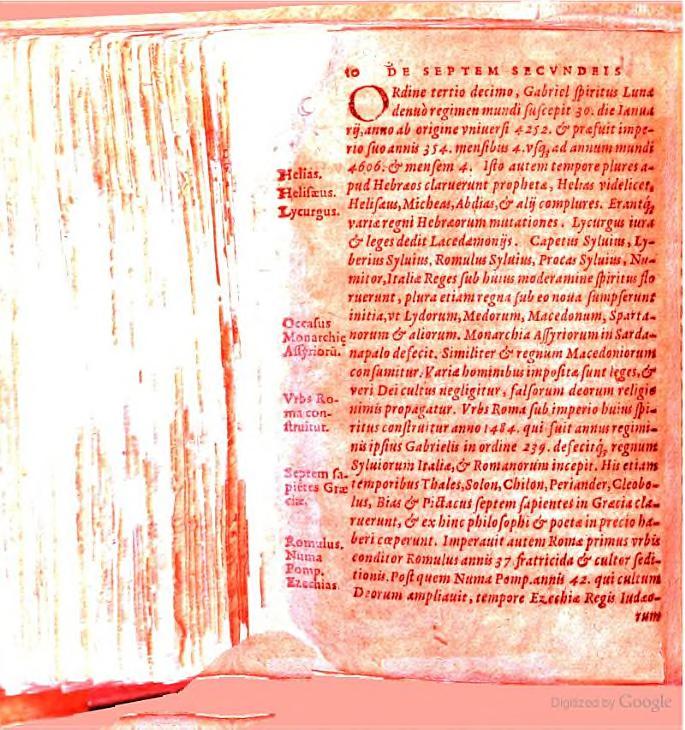 10 DE SEPTEM SECVNDEIS
ORdine tertio decimo, Gabriel spiritus Lunæ
denuò regimen mundi suscepit 30. die Ianua
rij, anno ab origine vniuersi 4252. & præfuit impe-
rio suo annis 354. mensibus 4. vsq; ad annum mundi
4606. & mensem 4. Isto autem tempore plures a-
pud Hebræos claruerunt prophetæ, Helias videlicet,
Helisæus, Micheas, Abdias, & alij complures. Erantq;
variæ regni Hebræorum mutationes. Lycurgus iura
& leges dedit Lacedæmonijs. Capetus Syluius, Ly-
berius Syluius, Romulus Syluius, Procas Syluius, Nu-
mitor, Italiæ Reges sub huius moderamine spiritus flo
ruerunt, plura etiam regna sub eo noua sumpserunt
initia, vt Lydorum, Medorum, Macedonum, Sparta-
norum & aliorum. Monarchia Assyriorum in Sarda-
napalo defecit. Similiter & regnum Macedoniorum
consumitur. Variæ hominibus impositæ sunt leges, &
veri Dei cultus negligitur, falsorum deorum religio
nimis propagatur. Vrbs Roma sub imperio huius spi-
ritus construitur anno 1484. qui fuit annus regimi-
nis ipsius Gabrielis in ordine 239. defecitq; regnum
Syluiorum Italiæ, & Romanorum incepit. His etiam
temporibus Thales, Solon, Chilon, Periander, Cleobo-
lus, Bias & Pittacus septem sapientes in Græcia cla-
ruerunt, & ex hinc philosophi & poetæ in precio ha-
beri cœperunt. Imperauit autem Romæ primus vrbis
conditor Romulus annis 37 fratricida & cultor sedi-
tionis. Post quem Numa Pomp. annis 42. qui cultum
Deorum ampliauit, tempore Ezechiæ Regis Iudæo-
rum
Helias.
Helisæus.
Lycurgus.
Occasus
Monarchię
Assyriorū.
Vrbs Ro-
ma con-
struitur.
Septem sa-
pietes Græ
ciæ.
Romulus.
Numa
Pomp.
Ezechias.
Digitized by Google